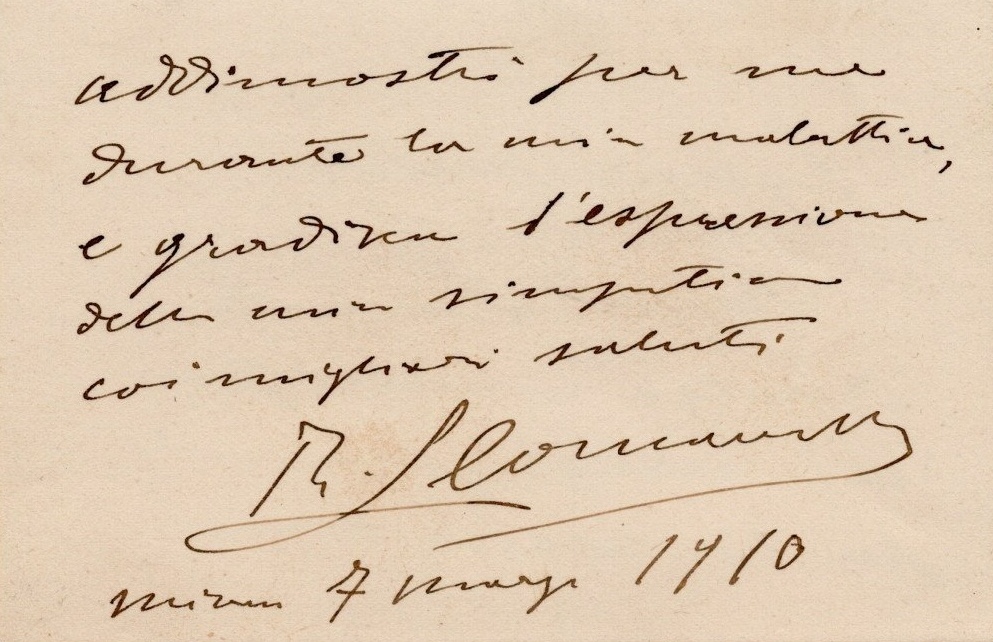 addimostrò per me
durante la mia malattia,
e gradisca l'espressione
della mia simpatia
coi migliori saluti
R. Leoncavallo
7 marzo 1910